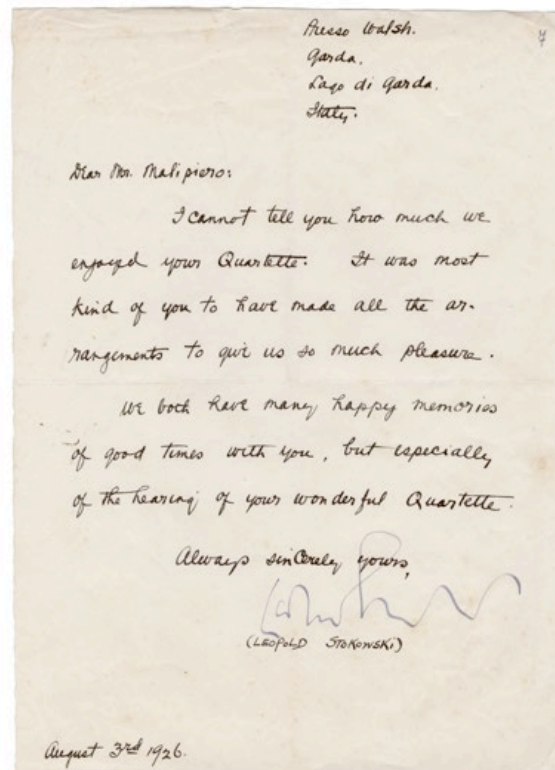 Presso Walsh.
Garda.
Lago di Garda.
Italy.
7
Dear Mr. Malipiero:
I cannot tell you how much we
enjoyed your Quartette. It was most
kind of you to have made all the ar-
rangements to give us so much pleasure.
We both have many happy memories
of good times with you, but especially
of the hearing of your wonderful Quartette.
Always sincerely yours,
(LEOPOLD STOKOWSKI)
August 3rd 1926.